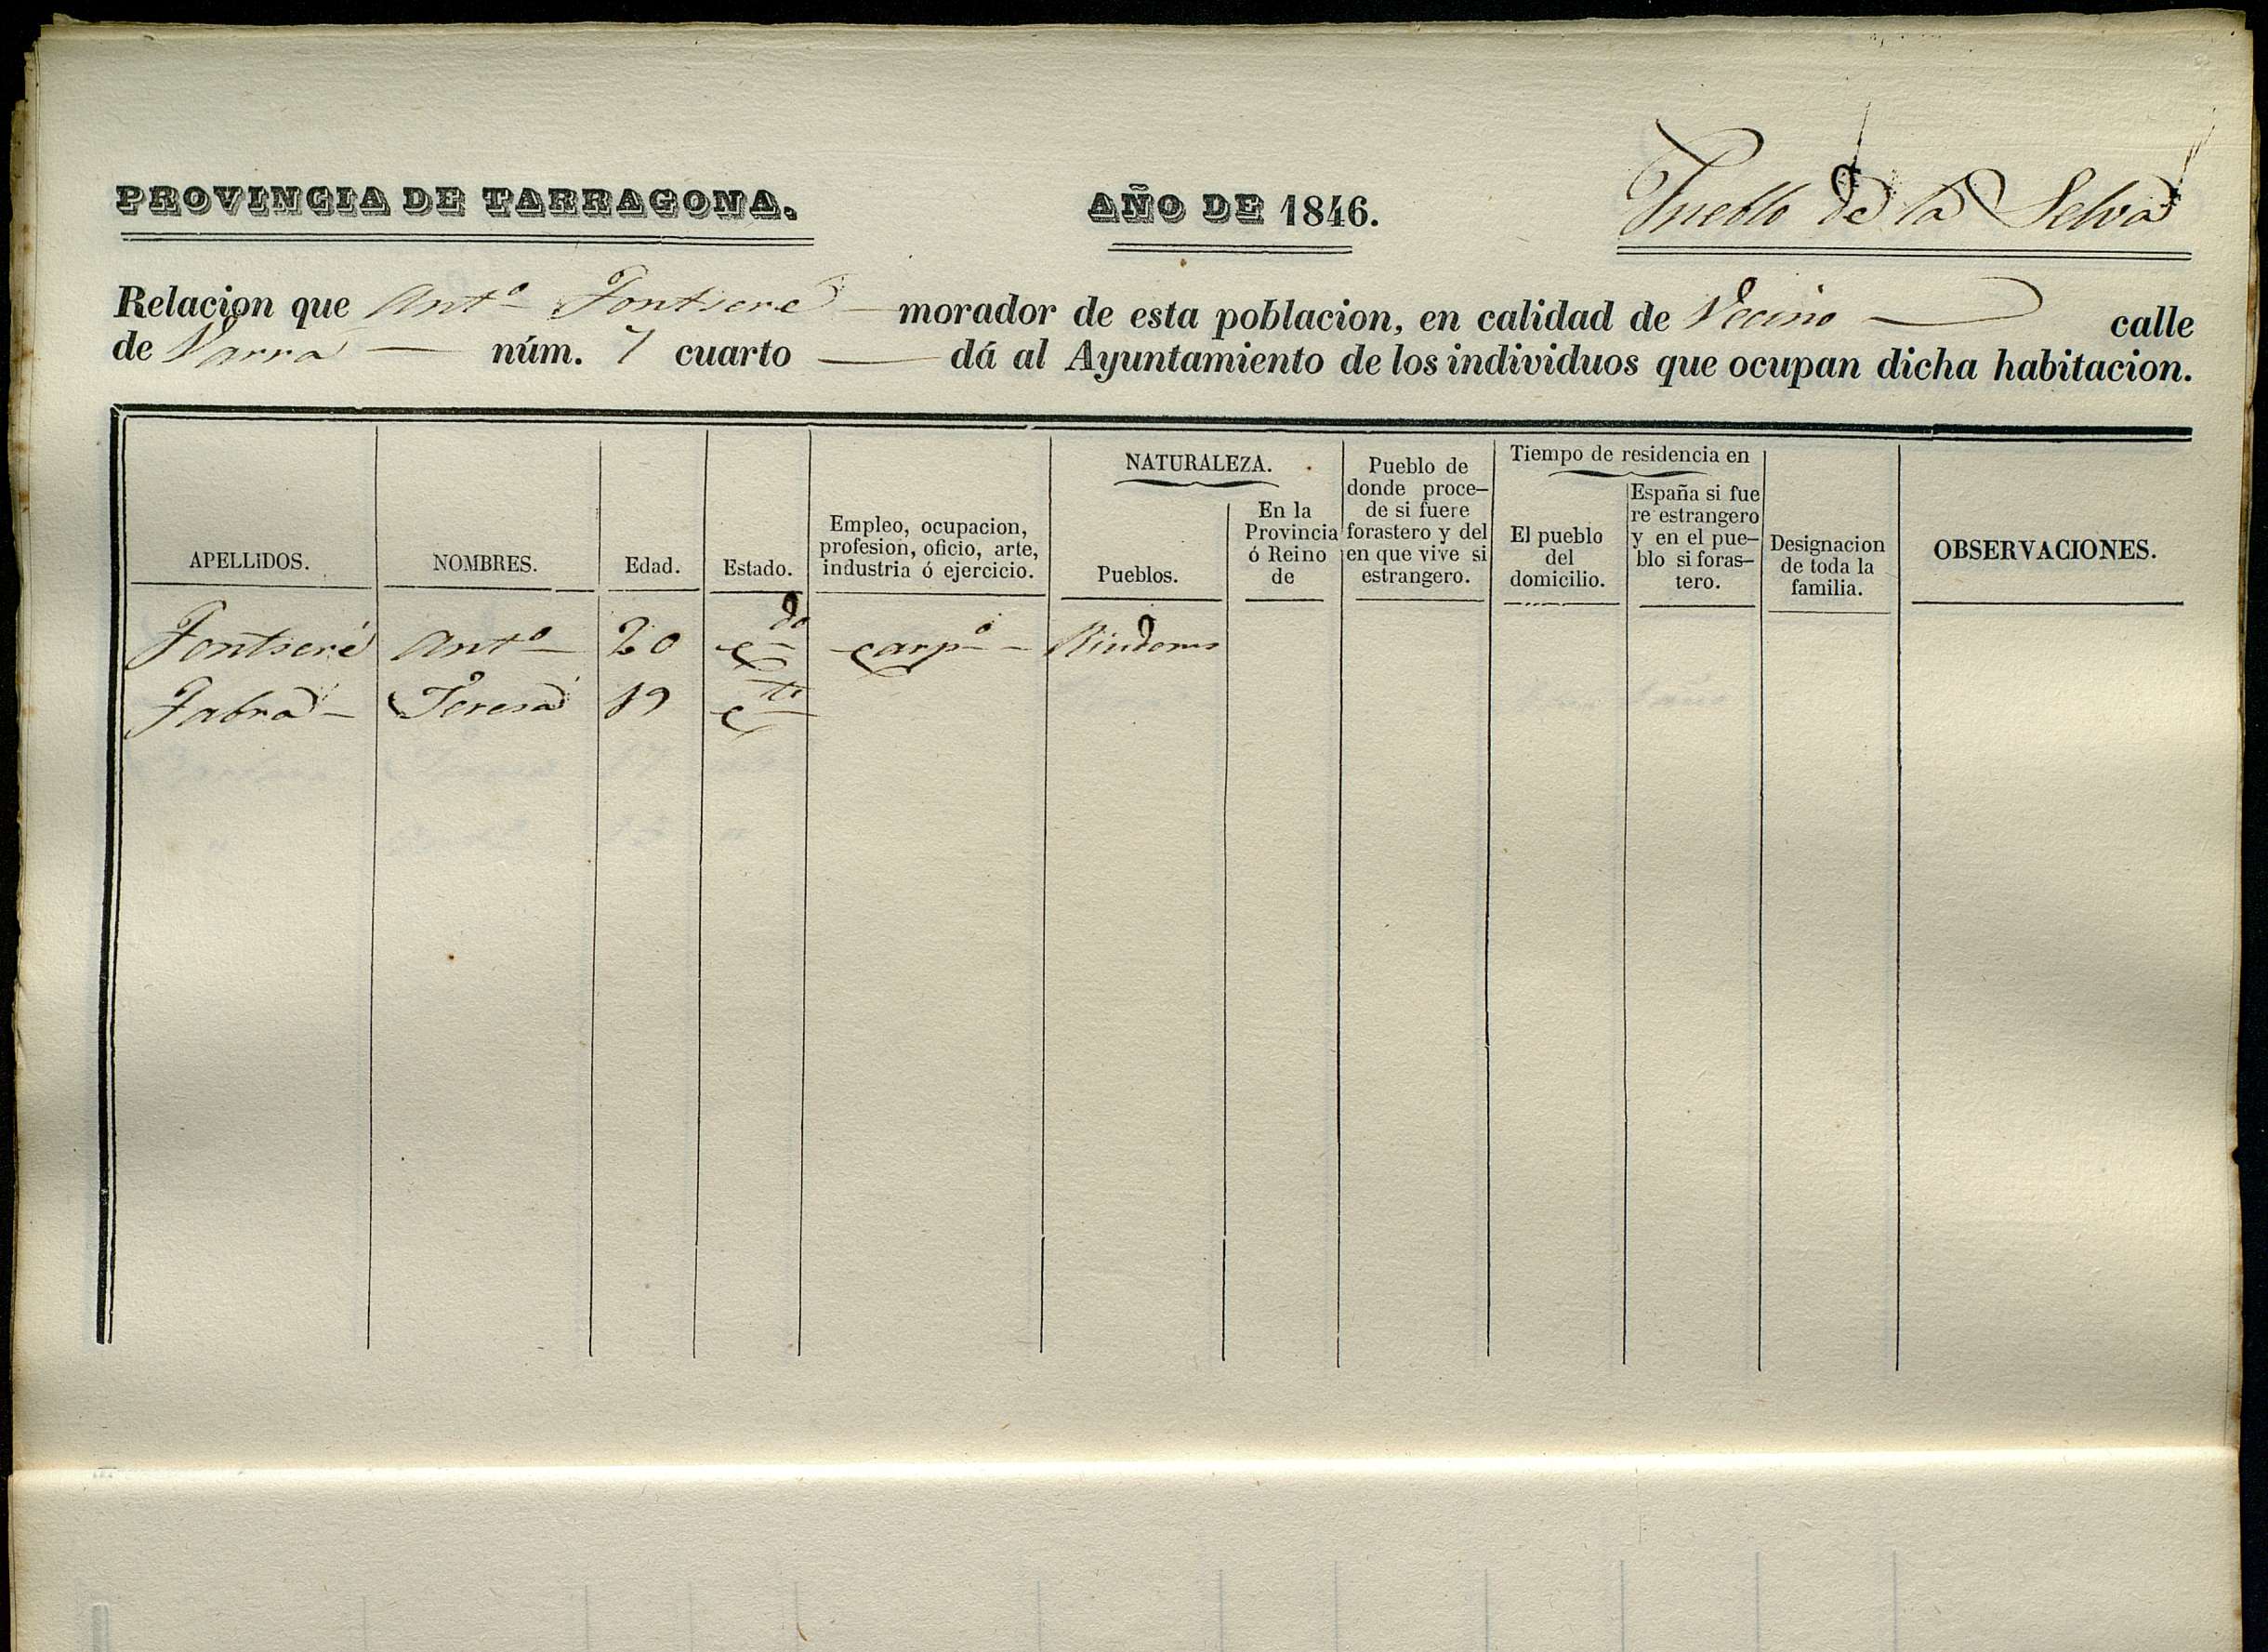 PROVINCIA DE TARRAGONA. AÑO DE 1846. Pueblo de la Selva
Relacion que Antº Fontseré morador de esta poblacion, en calidad de Vecino calle
de Parra núm. 7 cuarto — dá al Ayuntamiento de los individuos que ocupan dicha habitacion.
APELLIDOS.
NOMBRES.
Edad.
Estado.
Empleo, ocupacion,
profesion, oficio, arte,
industria ó ejercicio.
NATURALEZA.
Pueblos.
En la
Provincia
ó Reino
de
Pueblo de
donde proce-
de si fuere
forastero y del
en que vive si
estrangero.
Tiempo de residencia en
El pueblo
del
domicilio.
España si fue
re estrangero
y en el pue-
blo si foras-
tero.
Designacion
de toda la
familia.
OBSERVACIONES.
Fontseré Antº 20 cdo carpº Riudoms
Fabra Teresa 19 cta